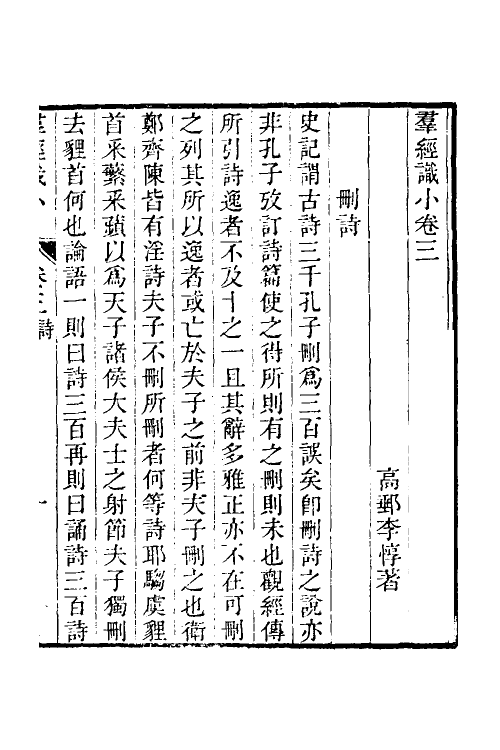 羣經識小卷三
高郵李惇著
刪詩
史記謂古詩三千孔子刪爲三百誤矣卽刪詩之說亦
非孔子攷訂詩篇使之得所則有之刪則未也觀經傳
所引詩逸者不及十之一且其辭多雅正亦不在可刪
之列其所以逸者或亡於夫子之前非夫子刪之也衛
鄭齊陳皆有淫詩夫子不刪所刪者何等詩耶騶虞貍
首采蘩采蘋以爲天子諸侯大夫士之射節夫子獨刪
去貍首何也論語一則曰詩三百再則曰誦詩三百詩
羣經識小 卷三詩 一